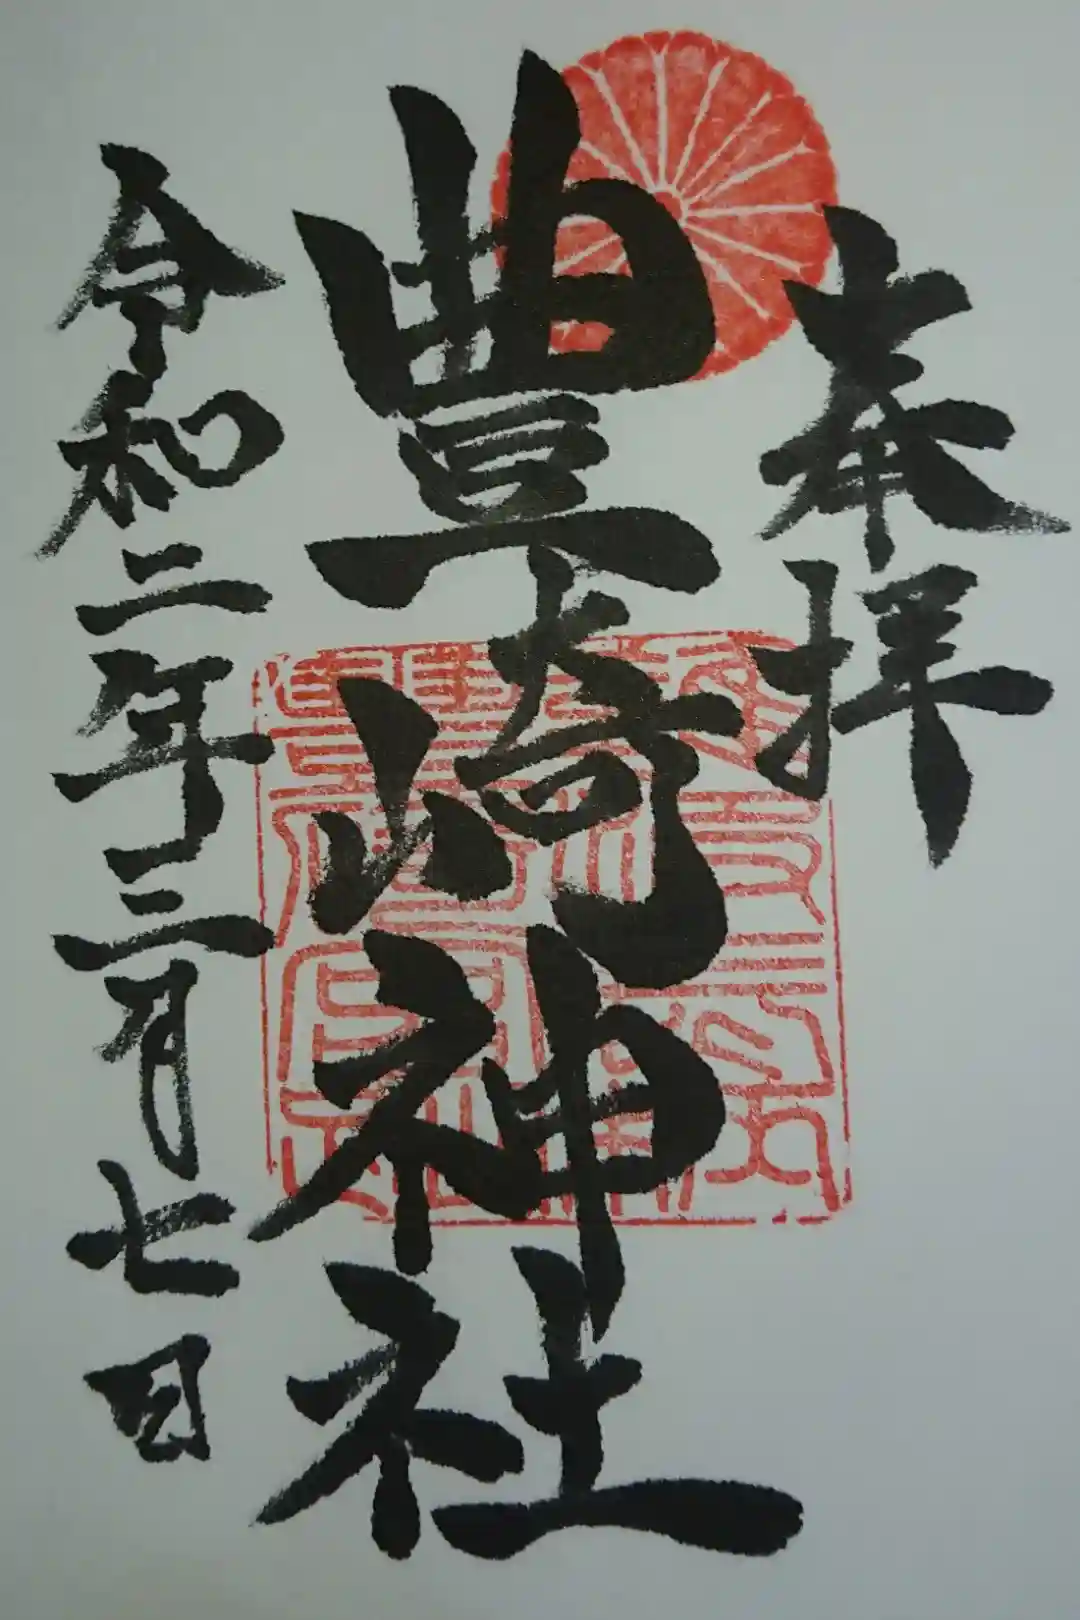 奉拝
豊崎神社
令和二年三月七日